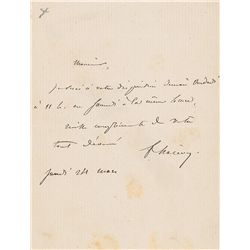 Monsieur,
à votre disposition demain Vendredi
à 11 h. ou Samedi à la même heure,
mille compliments de votre
tout dévoué
jeudi 24 mars